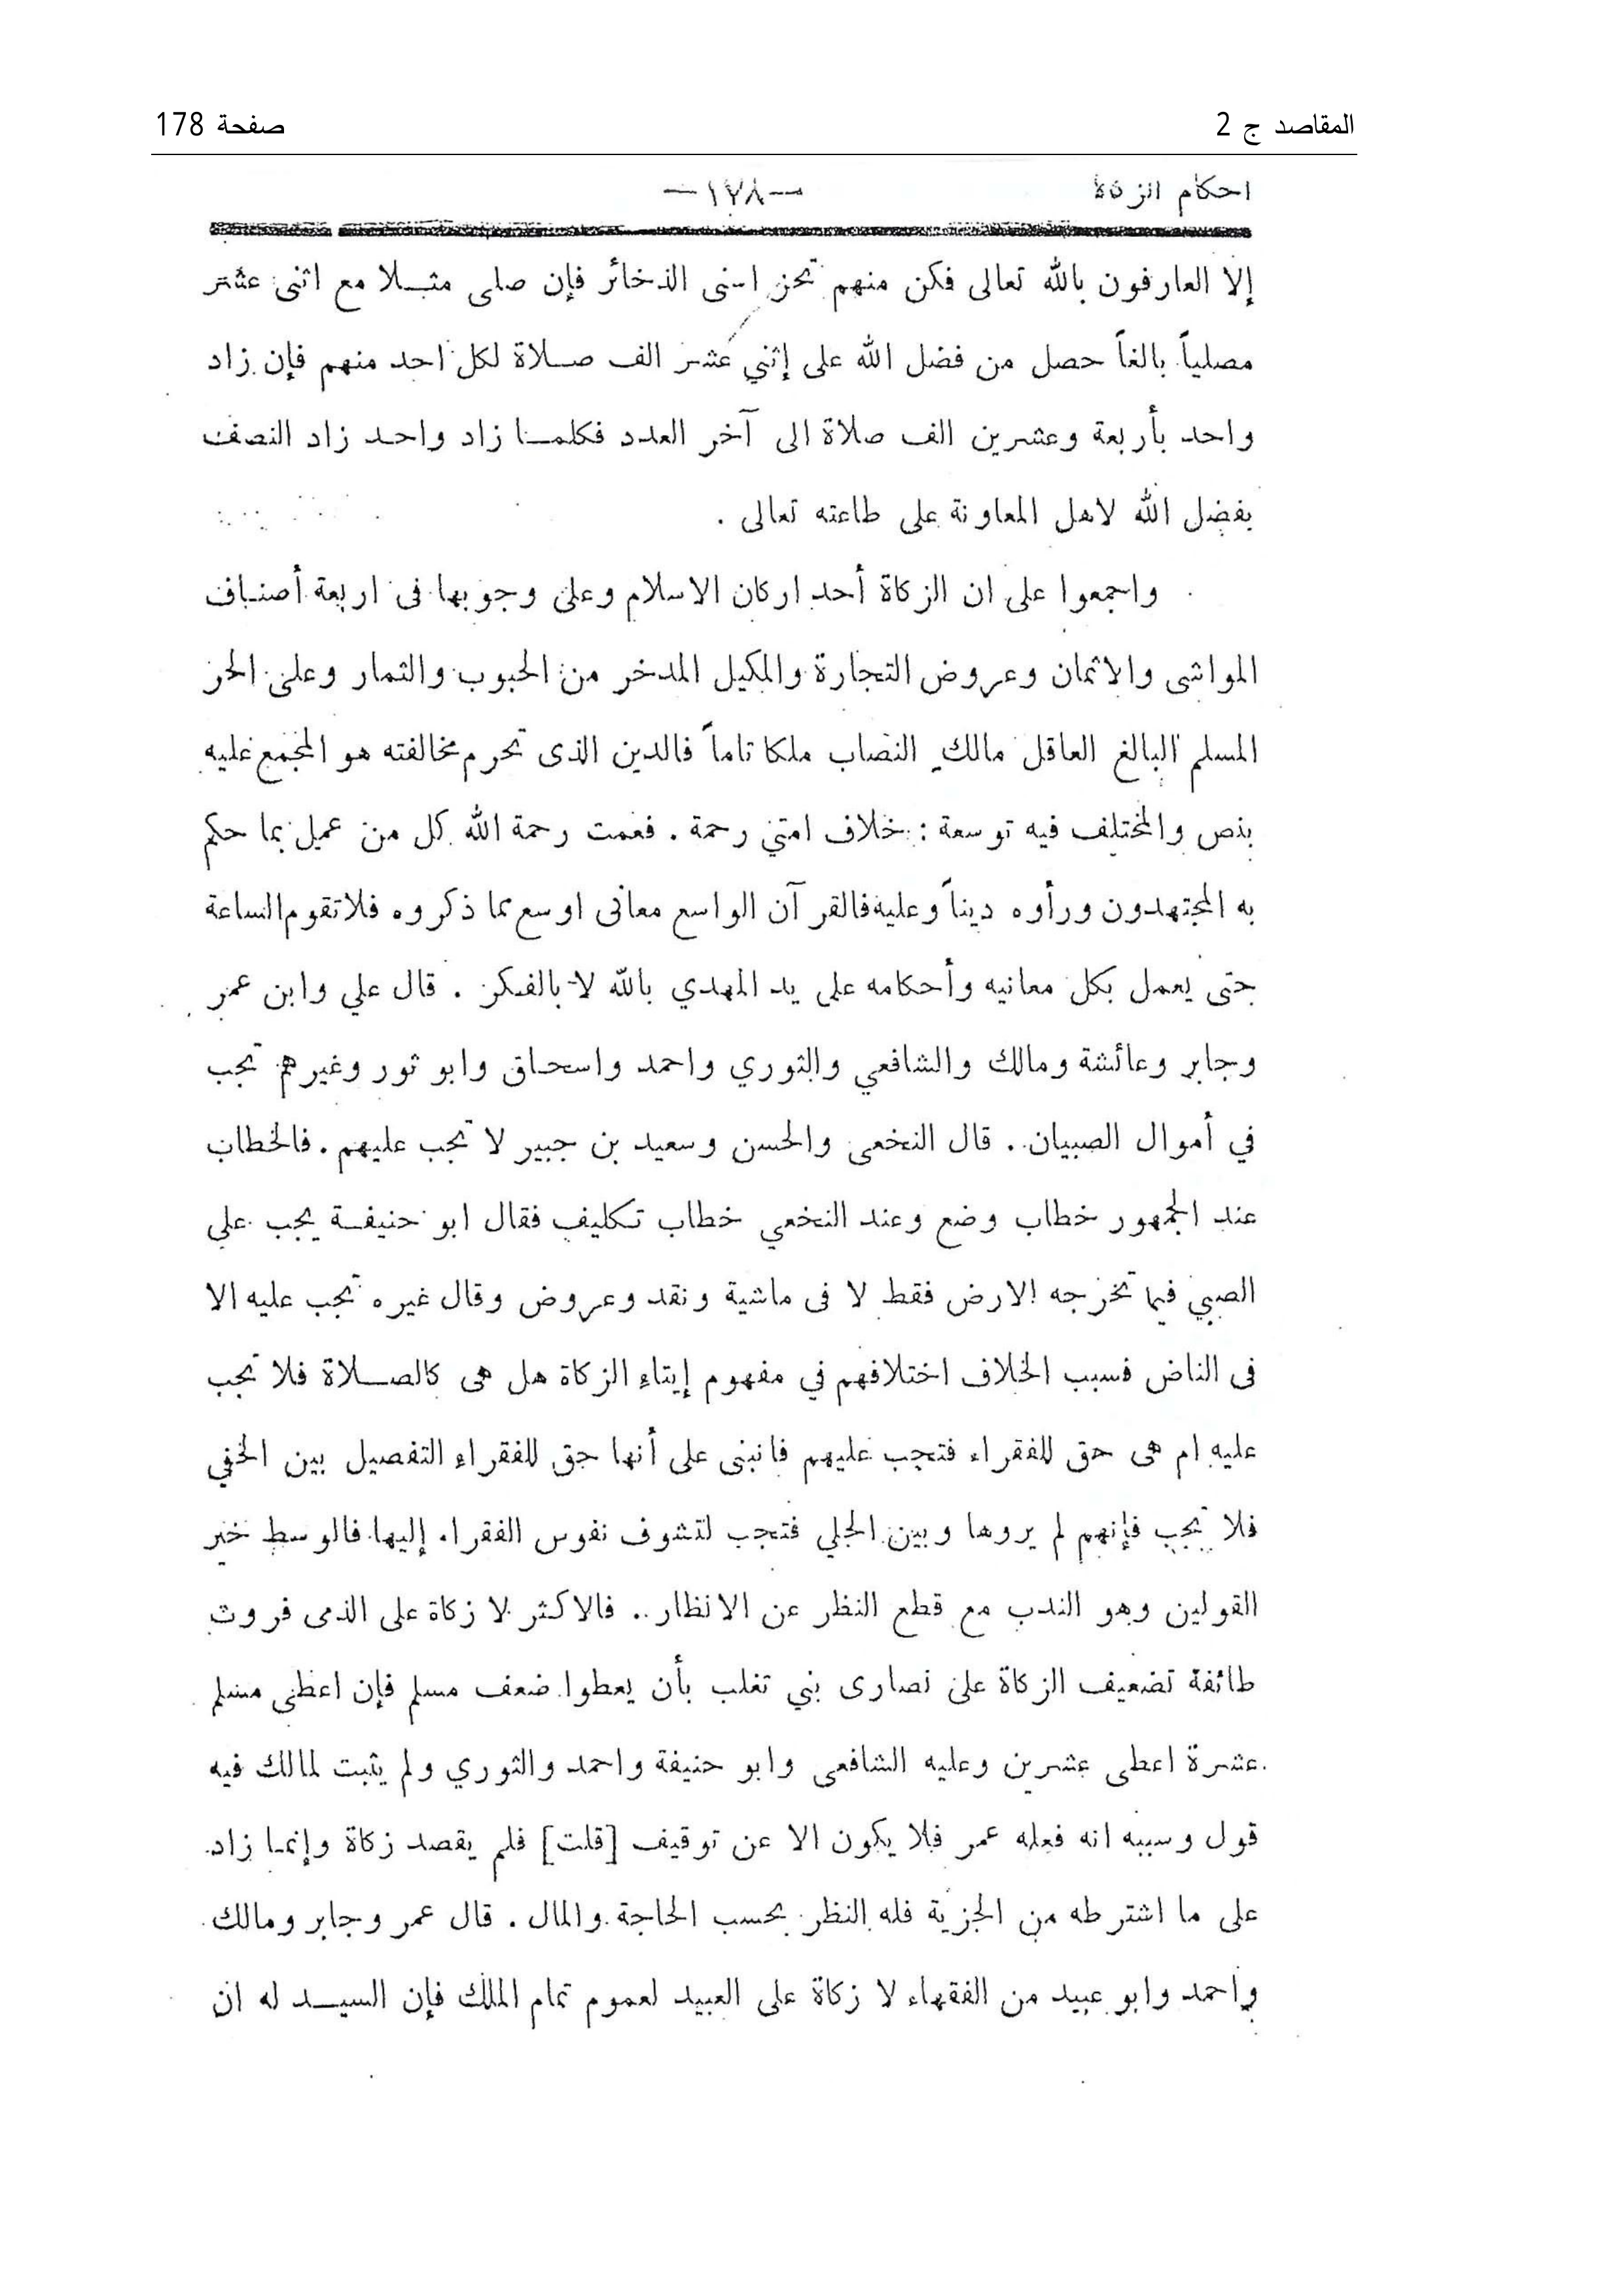 المقاصد ج 2
صفحة 178
احكام الزكاة
—١٧٨—
إلا العارفون بالله تعالى فكن منهم تحز اسنى الذخائر فإن صلى مثلا مع اثنى عشر
مصلياً بالغاً حصل من فضل الله على إثني عشر الف صلاة لكل احد منهم فإن زاد
واحد بأربعة وعشرين الف صلاة الى آخر العدد فكلما زاد واحد زاد النصف
بفضل الله لاهل المعاونة على طاعته تعالى .
واجمعوا على ان الزكاة أحد اركان الاسلام وعلى وجوبها فى اربعة أصناف
المواشى والاثمان وعروض التجارة والمكيل المدخر من الحبوب والثمار وعلى الحر
المسلم البالغ العاقل مالك النصاب ملكا تاماً فالدين الذى تحرم مخالفته هو المجمع عليه
بنص والمختلف فيه توسعة : خلاف امتي رحمة . فعمت رحمة الله كل من عمل بما حكم
به المجتهدون ورأوه ديناً وعليه فالقرآن الواسع معانى اوسع مما ذكروه فلا تقوم الساعة
حتى يعمل بكل معانيه وأحكامه على يد المهدي بالله لا بالفكر . قال علي وابن عمر
وجابر وعائشة ومالك والشافعي والثوري واحمد واسحاق وابو ثور وغيرهم تجب
في أموال الصبيان . قال النخعى والحسن وسعيد بن جبير لا تجب عليهم . فالخطاب
عند الجمهور خطاب وضع وعند النخعي خطاب تكليف فقال ابو حنيفة يجب على
الصبي فيما تخرجه الارض فقط لا فى ماشية ونقد وعروض وقال غيره تجب عليه الا
فى الناض فسبب الخلاف اختلافهم في مفهوم إيتاء الزكاة هل هى كالصلاة فلا تجب
عليه ام هى حق للفقراء فتجب عليهم فانبنى على أنها حق للفقراء التفصيل بين الخفي
فلا تجب فإنهم لم يروها وبين الجلي فتجب لتشوف نفوس الفقراء إليها فالوسط خير
القولين وهو الندب مع قطع النظر عن الانظار . فالاكثر لا زكاة على الذمى فروت
طائفة تضعيف الزكاة على نصارى بني تغلب بأن يعطوا ضعف مسلم فإن اعطى مسلم
عشرة اعطى عشرين وعليه الشافعى وابو حنيفة واحمد والثوري ولم يثبت لمالك فيه
قول وسببه انه فعله عمر فلا يكون الا عن توقيف [قلت] فلم يقصد زكاة وإنما زاد
على ما اشترطه من الجزية فله النظر بحسب الحاجة والمال . قال عمر وجابر ومالك
واحمد وابو عبيد من الفقهاء لا زكاة على العبيد لعموم تمام الملك فإن السيد له ان